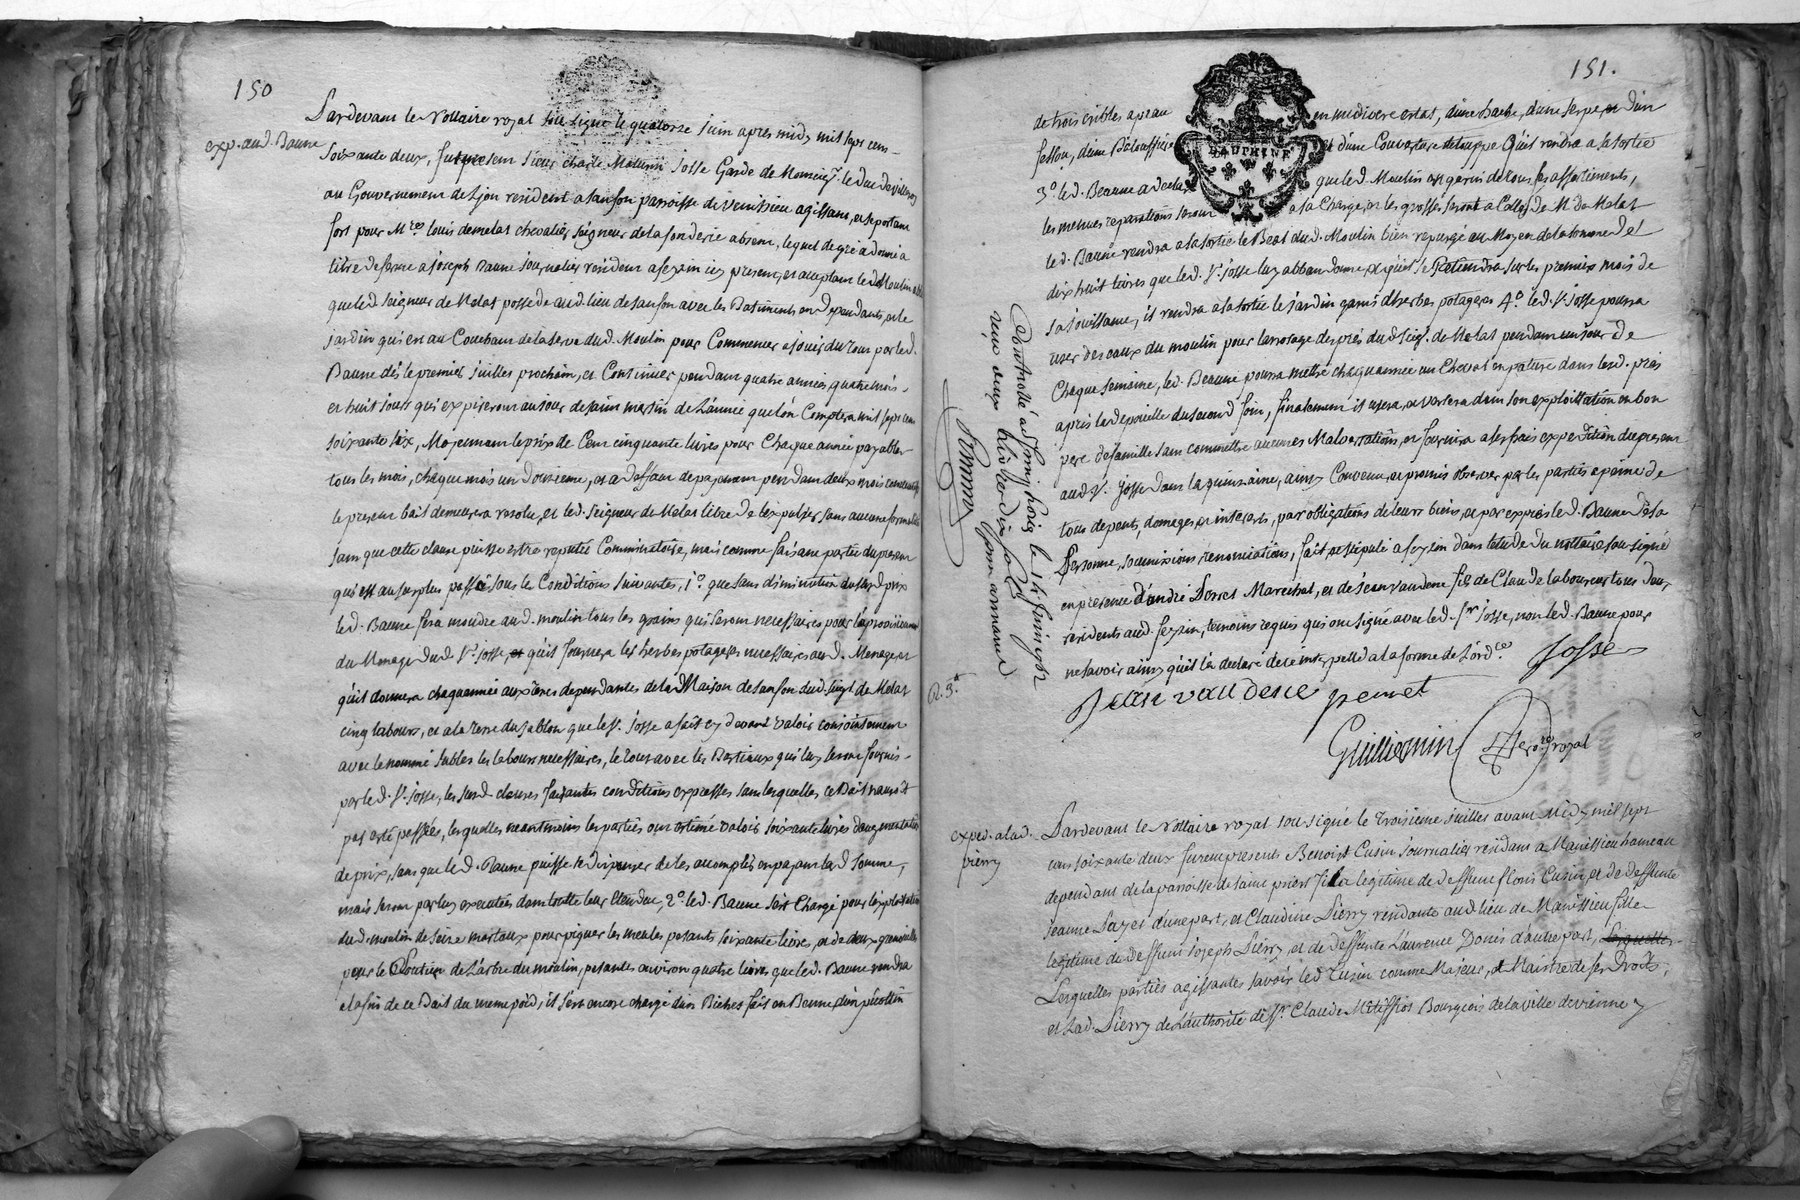 150
exp. aud. Baune
Pardevant le Nottaire royal sousigné le quatorze juin apres midy mil sept cens
soixante deux, fut present sieur charle Maturin Josse Garde de Monseigr. le duc de villeroy
au Gouvernement de Lyon resident a sanson parroisse de Venissieu agissant, et se portant
fort pour Mre louis demelat chevalier seigneur de la fonderie absent, lequel de gré a donné a
titre de ferme a joseph Baune journalier resident a seyzin icy present, et acceptant le Moulin
que led. seigneur de Melat possede aud. lieu de sanson avec les Batiments en dependants, et le
jardin qui est au Couchant de la serve dud. Moulin pour Commencer a jouir du tout par led.
Baune dès le premier juillet prochain, et Continuer pendant quatre années quatre mois
et huit jours qui expireront au jour de saint martin de L'année que l'on Comptera mil sept cens
soixante six, Moyennant le prix de Cent cinquante livres pour Chaque année payables
tous les mois, chaque mois un douzieme, et a deffaut de payement pendant deux mois consecutifs
le present bail demeurera resolu, et led. seigneur de Melat libre de l'expulser sans aucune formalité
sans que cette clause puisse estre reputée Comminatoire, mais comme faisant partie du present
qui est au surplus passé sous les Conditions suivantes, 1o. que sans diminution dud. prix
led. Baune fera moudre aud. moulin tous les grains qui seront necessaires pour la provision
du Menage dud. Sr. Josse, et qu'il fournira les herbes potageres necessaires aud. Menage, et
qu'il donnera chaque année aux terres dependantes de la Maison de sanson dud. seigr. de Melat
cinq labours, et a la terre du sablon que led. Sr. Josse a fait cy devant valoir conjointement
avec le nommé sables les labours necessaires, le tout avec les Bestiaux qui luy seront fournis
par led. Sr. Josse, les susd. clauses faisantes conditions expresses sans lesquelles ce Bail n'auroit
pas esté passées, lesquelles neantmoins les parties ont estimé valoir soixante livres d'augmentation
de prix, sans que led. Baune puisse se dispenser de les accomplir en payant lad. somme,
mais seront par luy executées dans toutte leur étendue, 2o. led. Baune s'est Chargé pour l'exploitation
dud. moulin de seize marteaux pour piquer les meules pesants soixante livres, et de deux grenouilles
pour le Soutien de L'arbre du moulin, pesantes environ quatre livres, que led. Baune rendra
a la fin de ce Bail du meme poid, il s'est encore chargé d'un Bichet fait en Benne, d'un picottin
151.
de trois cribles a peau en mediocre estat, d'une hache, d'une serpe, et d'un
fessou, d'une Beloussiere et d'une Couverture detouppe Qu'il rendra a sa sortie
3o. led. Beaune a declaré que led. Moulin est garni de tous ses assortiments,
les menues reparations seront a sa Charge, et les grosses seront a Celles de M. de Melat
led. Baune rendra a sa sortie le Beal dud. Moulin bien repurgé au Moyen de la somme de
dix huit livres que led. Sr. Josse luy abbandonne, et qu'il se Retiendra sur les premiers mois de
sa jouissance, il rendra a sa sortie le jardin garni d'herbes potageres 4o. led. Sr. Josse pourra
user des eaux du moulin pour l'arrosage des prés dud. seigr. de Melat pendant un jour de
Chaque semaine, led. Beaune pourra mettre chaque année un Cheval en pature dans lesd. prés
après la depouille du second foin, finalement il usera, et versera dans son exploittation en bon
pere de famille sans commettre aucunes Malversations, et fournira a ses frais expedition du present
aud. Sr. Josse dans la quinzaine, ainsy Convenu, et promis observer par les parties a peine de
tous depents, domages, et interets, par obligations de leurs biens, et par exprès led. Baune de sa
Personne, soumissions renonciations, fait et stipulé a seyzin dans l'etude du nottaire sousigné
en presence d'andré Pernet Marechal, et de jean vaudene fils de Claude laboureur tous deux
residents aud. seyzin, temoins requis qui ont signé avec led. Sr Josse, non led. Baune pour
ne savoir ainsy qu'il l'a declaré de ce interpellé a la forme de L'ordce. Josse
Jean vaudene pernet
Guilliermin Nre royal
R. 3.e
Controllé a st simphorien le 25 juin 1762
reçu onze livres dix sols
exped. a lad.
pierry
Pardevant le Nottaire royal sousigné le Troisieme juillet avant Midy mil sept
cens soixante deux furent presents Benoist Cusin journalier residant a Manissieu hameau
dependant de la parroisse de saint priest fils legitime de deffunt flory Cusin, et de deffunte
jeanne Payet d'une part, et Claudine Pierry residante aud. lieu de Manissieu fille
legitime de deffunt joseph Pierry, et de deffunte Laurence Donis d'autre part, Lesquelles
Lesquelles parties agissantes savoir led. Cusin comme Majeur, et Maistre de ses Droits,
et Lad. Pierry de L'authorité de Sr. Claude Mitiffiot Bourgeois de la ville de vienne